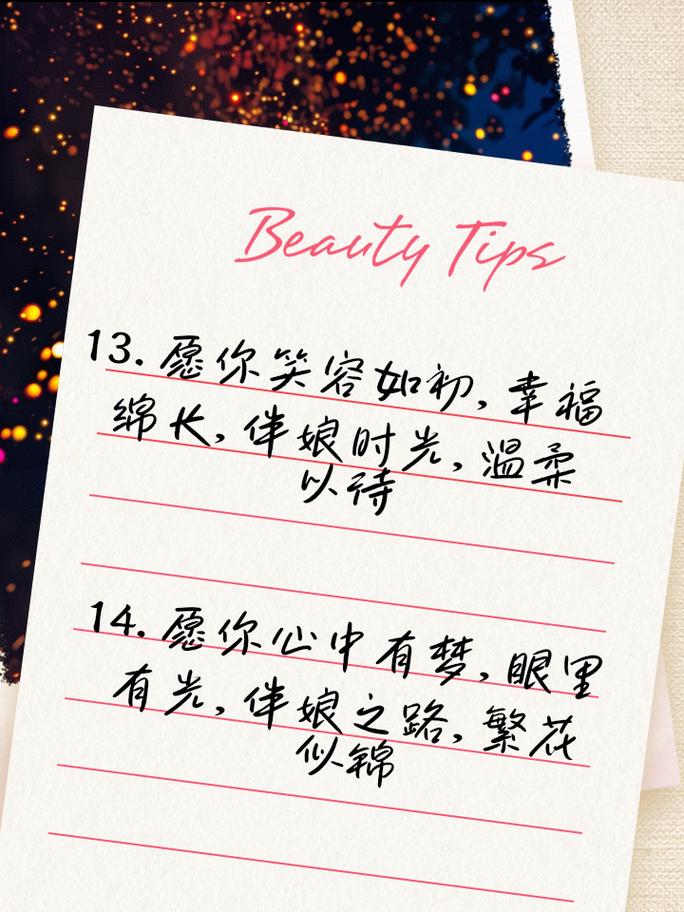 Beauty Tips
13. 愿你笑容如初，幸福
绵长，伴娘时光，温柔
以待
14. 愿你心中有梦，眼里
有光，伴娘之路，繁花
似锦